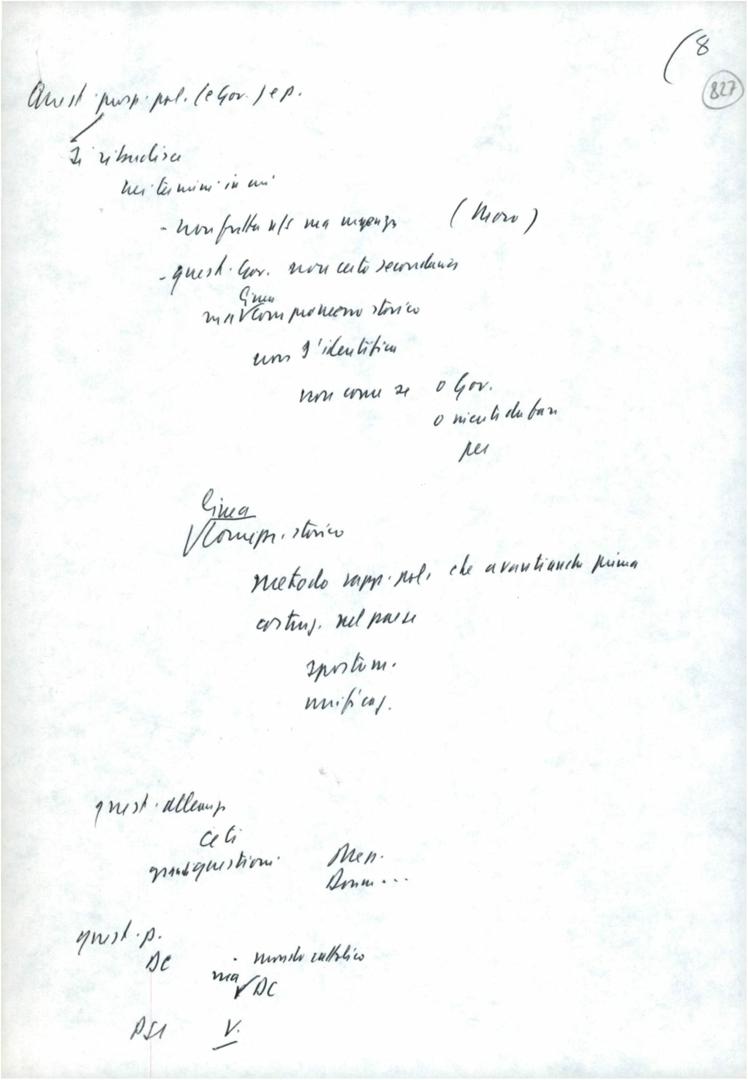 (8
827
Quest. prosp. pol. (e Gov.) e p.
Si ribadisce
nei termini in cui
- non fretta n/s ma urgenza (Moro)
- quest. Gov. non certo secondaria
linea
ma compromesso storico
non s'identifica
non come se o Gov.
o niente da fare
per
linea
compr. storico
metodo rapp. pol. che avanti anche prima
costruz. nel paese
spostam.
unificaz.
quest. alleanze
ceti
grandi questioni Mezz.
Donn...
quest. p.
DC mondo cattolico
ma DC
PSI V.